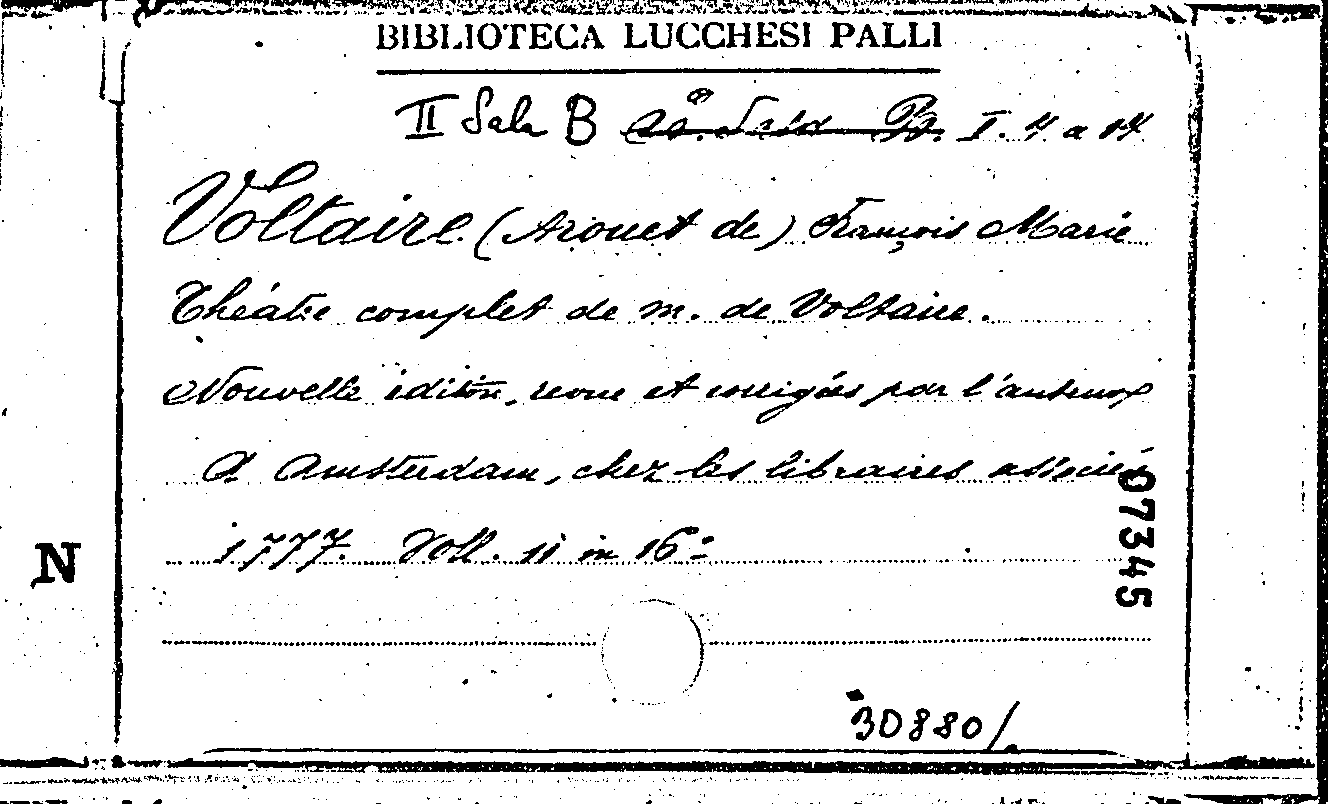 BIBLIOTECA LUCCHESI PALLI
II Sala B I. 4 a 14
Voltaire (Arouet de) François Marie
Théatre complet de m. de Voltaire.
Nouvelle édition, revue et corrigées par l'auteur
A Amsterdam, chez les libraires associés
1777. Voll. 11 in 16º
N
07345
30880/